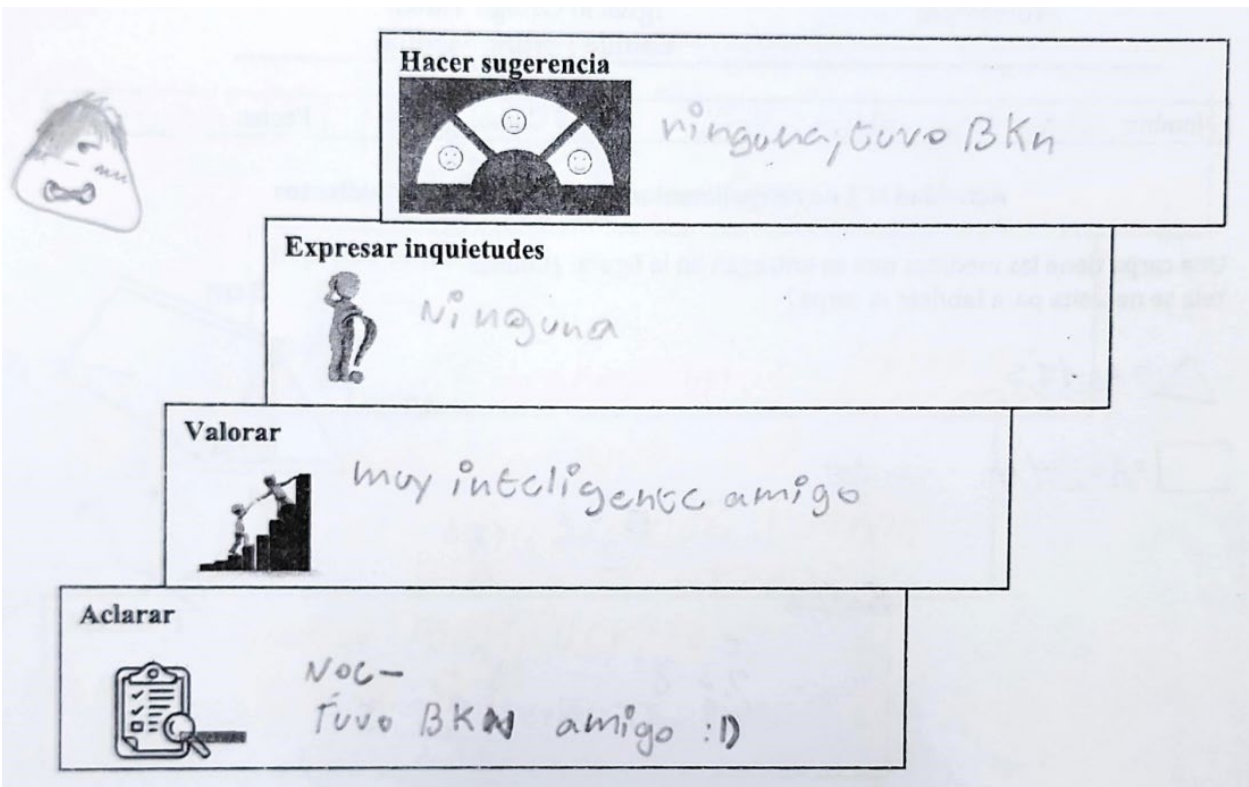 Hacer sugerencia
ninguna, tuvo BKn
Expresar inquietudes
Ninguna
Valorar
muy inteligente amigo
Aclarar
Noc-
tuvo BKN amigo :D